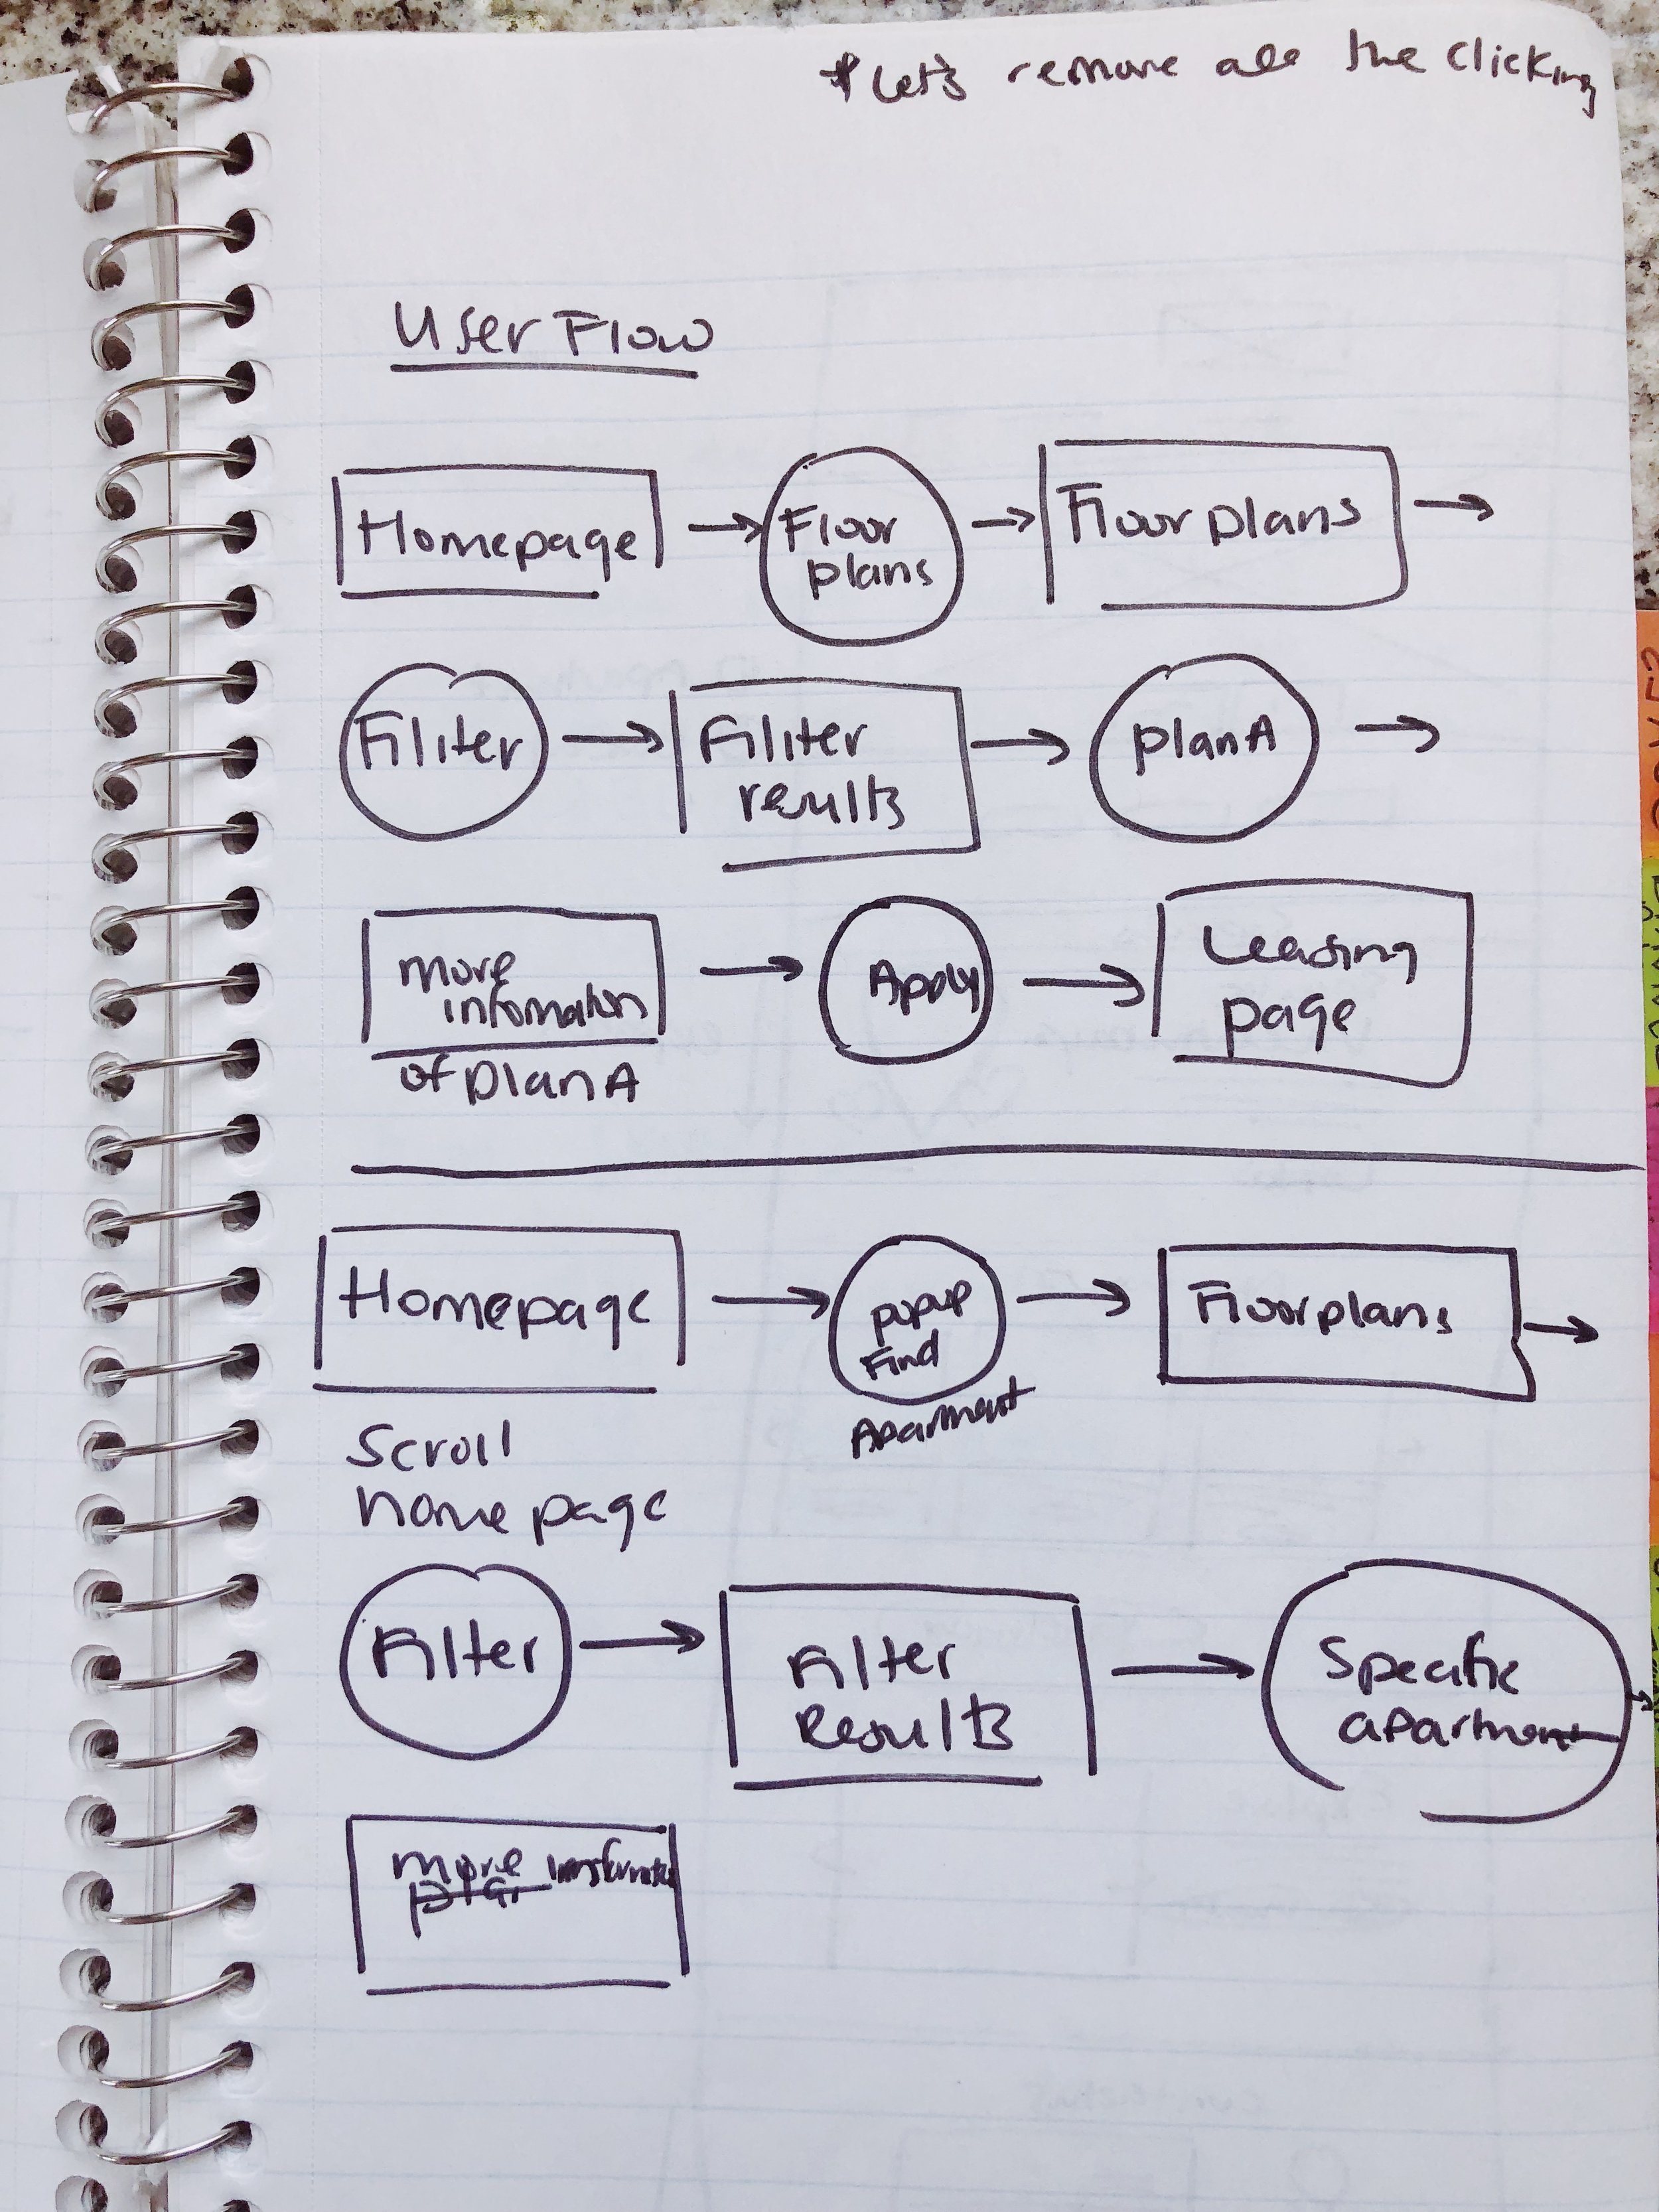 * Let's remove all the clicking
User Flow
Homepage → Floor plans → Floor plans →
Filiter → Filiter results → plan A →
more infomation of plan A → Apply → Leasing page
Homepage → popup Find Apartment → Floorplans →
Scroll
home page
Filter → Filter Results → Specific apartment →
more